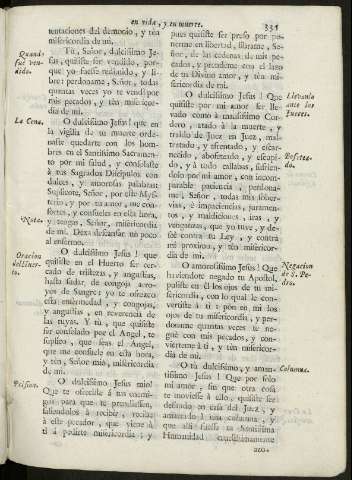 en vida, y en muerte. 331
tentaciones del demonio, y ten
misericordia de mi.
Quando
fué ven-
dido.
Tú, Señor, dulcisimo Je-
sus, quisiste ser vendido, por-
que yo fuesse redimido, y li-
bre: perdoname, Señor, todas
quantas veces yo te vendí por
mis pecados, y ten misericor-
dia de mi.
La Cena.
O dulcisimo Jesus! que en
la vigilia de tu muerte orde-
naste quedarte con los hom-
bres en el Santisimo Sacramen-
to por mi salud, y consolaste
à tus Sagrados Discipulos con
dulces, y amorosas palabras:
Suplicote, Señor, por este Myste-
rio, y por tu amor, me con-
fortes, y consueles en esta hora,
Nota.
y tengas, Señor, misericordia
de mi. Dexa descansar un poco
al enfermo.
Oracion
del Huer-
to.
O dulcisimo Jesus! que
quisiste en el Huerto ser cer-
cado de tristezas, y angustias,
hasta sudar de congoja arro-
yos de Sangre: yo te ofrezco
esta enfermedad, y congojas,
y angustias, en reverencia de
las tuyas. Y tú, que quisiste
ser consolado por el Angel, te
suplico, que seas el Angel,
que me consuele en esta hora,
y ten, Señor mio, misericordia
de mi.
Prision.
O dulcisimo Jesus mio!
Que te ofreciste à tus enemi-
gos para que te prendiessen,
saliendolos à recibir, recibe
à este pecador, que viene à
ti à pedirte misericordia; y
pues quisiste ser preso por po-
nerme en libertad, librame, Se-
ñor, de las cadenas de mis pe-
cados, y prendeme con el lazo
de tu Divino amor, y ten mi-
sericordia de mi.
Llevanle
ante los
Jueces.
O dulcisimo Jesus! Que
quisiste por mi amor ser lle-
vado como à mansisimo Cor-
dero, atado à la muerte, y
traído de Juez en Juez, mal-
tratado, y afrentado, y escar-
Bofetea-
do.
necido, abofeteado, y escupi-
do, y à todo callabas, sufrien-
dolo por mi amor, con incom-
parable paciencia, perdona-
me, Señor, todas mis sober-
vias, è impaciencias, juramen-
tos, y maldiciones, iras, y
venganzas, que yo tuve, y de-
seè contra tu Ley, y contra
mi proximo, y ten misericor-
dia de mi.
Negacion
de S. Pe-
dro.
O amorosisimo Jesus! Que
haviendote negado tu Apostol,
pusiste en él los ojos de tu mi-
sericordia, con lo qual le con-
vertiste à ti: pon en mi los
ojos de tu misericordia, y per-
doname quantas veces te ne-
guè con mis pecados, y con-
vierteme à ti, y ten misericor-
dia de mi.
Columna.
O tú dulcisimo, y aman-
tisimo Jesus! Que por solo
mi amor, sin que otra cosa
te moviesse à ello, quisiste ser
desnudo en casa del Juez, y
amarrado à una columna, y
que alli fuesse tu Santisima
Humanidad cruelisimamente
azo-